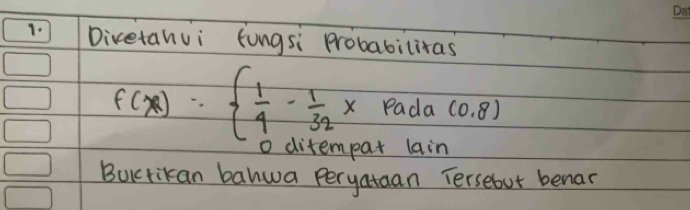 Dat
1. Diketahui fungsi Probabilitas
f(x) = { 1/4 - 1/32 x Pada (0.8)
0 ditempat lain
Buktikan bahwa Peryataan Tersebut benar